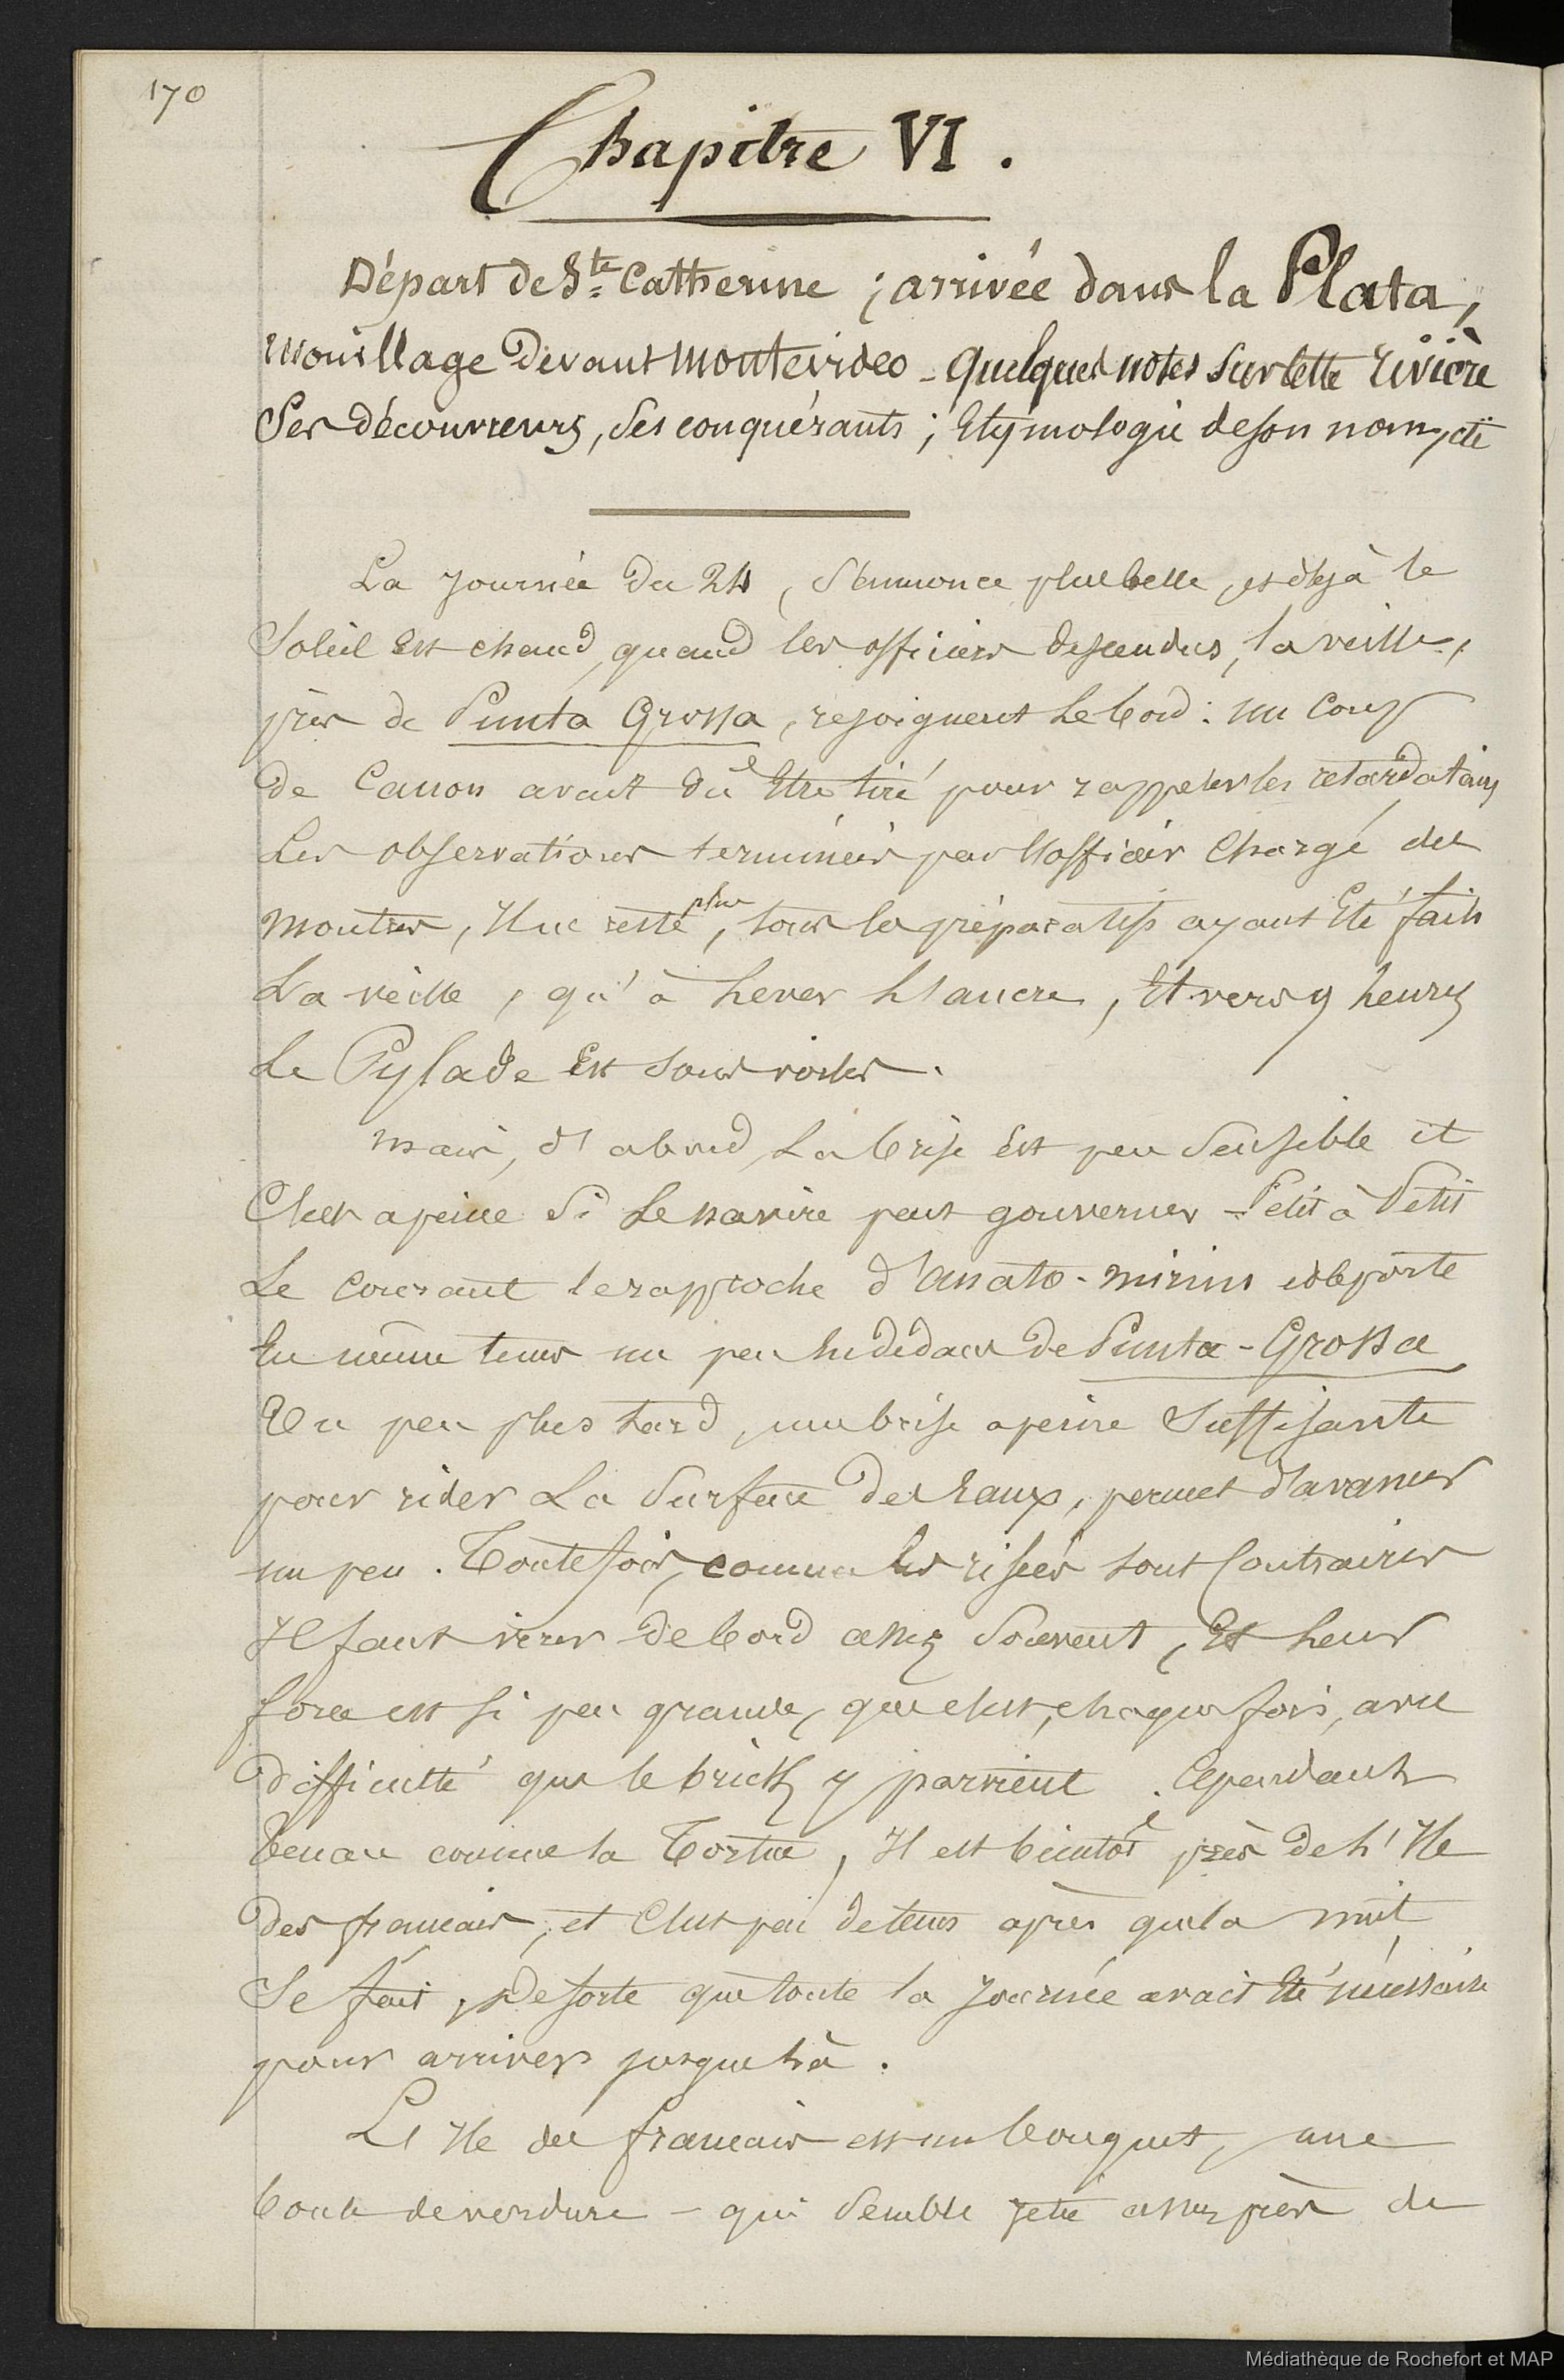 170
Chapitre VI.
Départ de Ste Catherine ; arrivée dans la Plata,
mouillage devant Montevideo - quelques notes sur cette rivière
Ses découvreurs, ses conquérants ; Etymologie de son nom, etc
La journée du 24, s'annonce plus belle, et déjà le
Soleil est chaud, quand les officiers descendus, la veille,
près de Punta Grossa, rejoignent le bord : un coup
de Canon avait dû être tiré pour rappeler les retardataires
Les observations terminées par l'officier chargé des
montres, il ne reste plus, tous les préparatifs ayant été faits
La veille, qu'à lever l'ancre, Et vers 9 heures
Le Pylade Est sous voiles.
Mais, d'abord, La brise est peu sensible et
C'est apeine si le navire peut gouverner - Petit à Petit
Le courant le rapproche d'Anato-mirim et le porte
En même tems un peu en dedans de Punta-Grossa
Un peu plus tard, une brise apeine suffisante
pour rider La surface des Eaux, permet d'avancer
un peu. Toutefois, comme les risées sont contraires
Il faut virer de bord assez souvent, Et leur
force est si peu grande, que c'est, chaque fois, avec
difficulté que le brick y parvient. Cependant
tenace comme la Tortue, Il est bientôt près de l'Ile
des français, et C'est peu de tems après que la nuit
Se fait, De sorte que toute la journée avait été nécessaire
pour arriver jusque là.
L'Ile des français est un bouquet, une
boule de verdure - qui semble jeté assez près de
Médiathèque de Rochefort et MAP